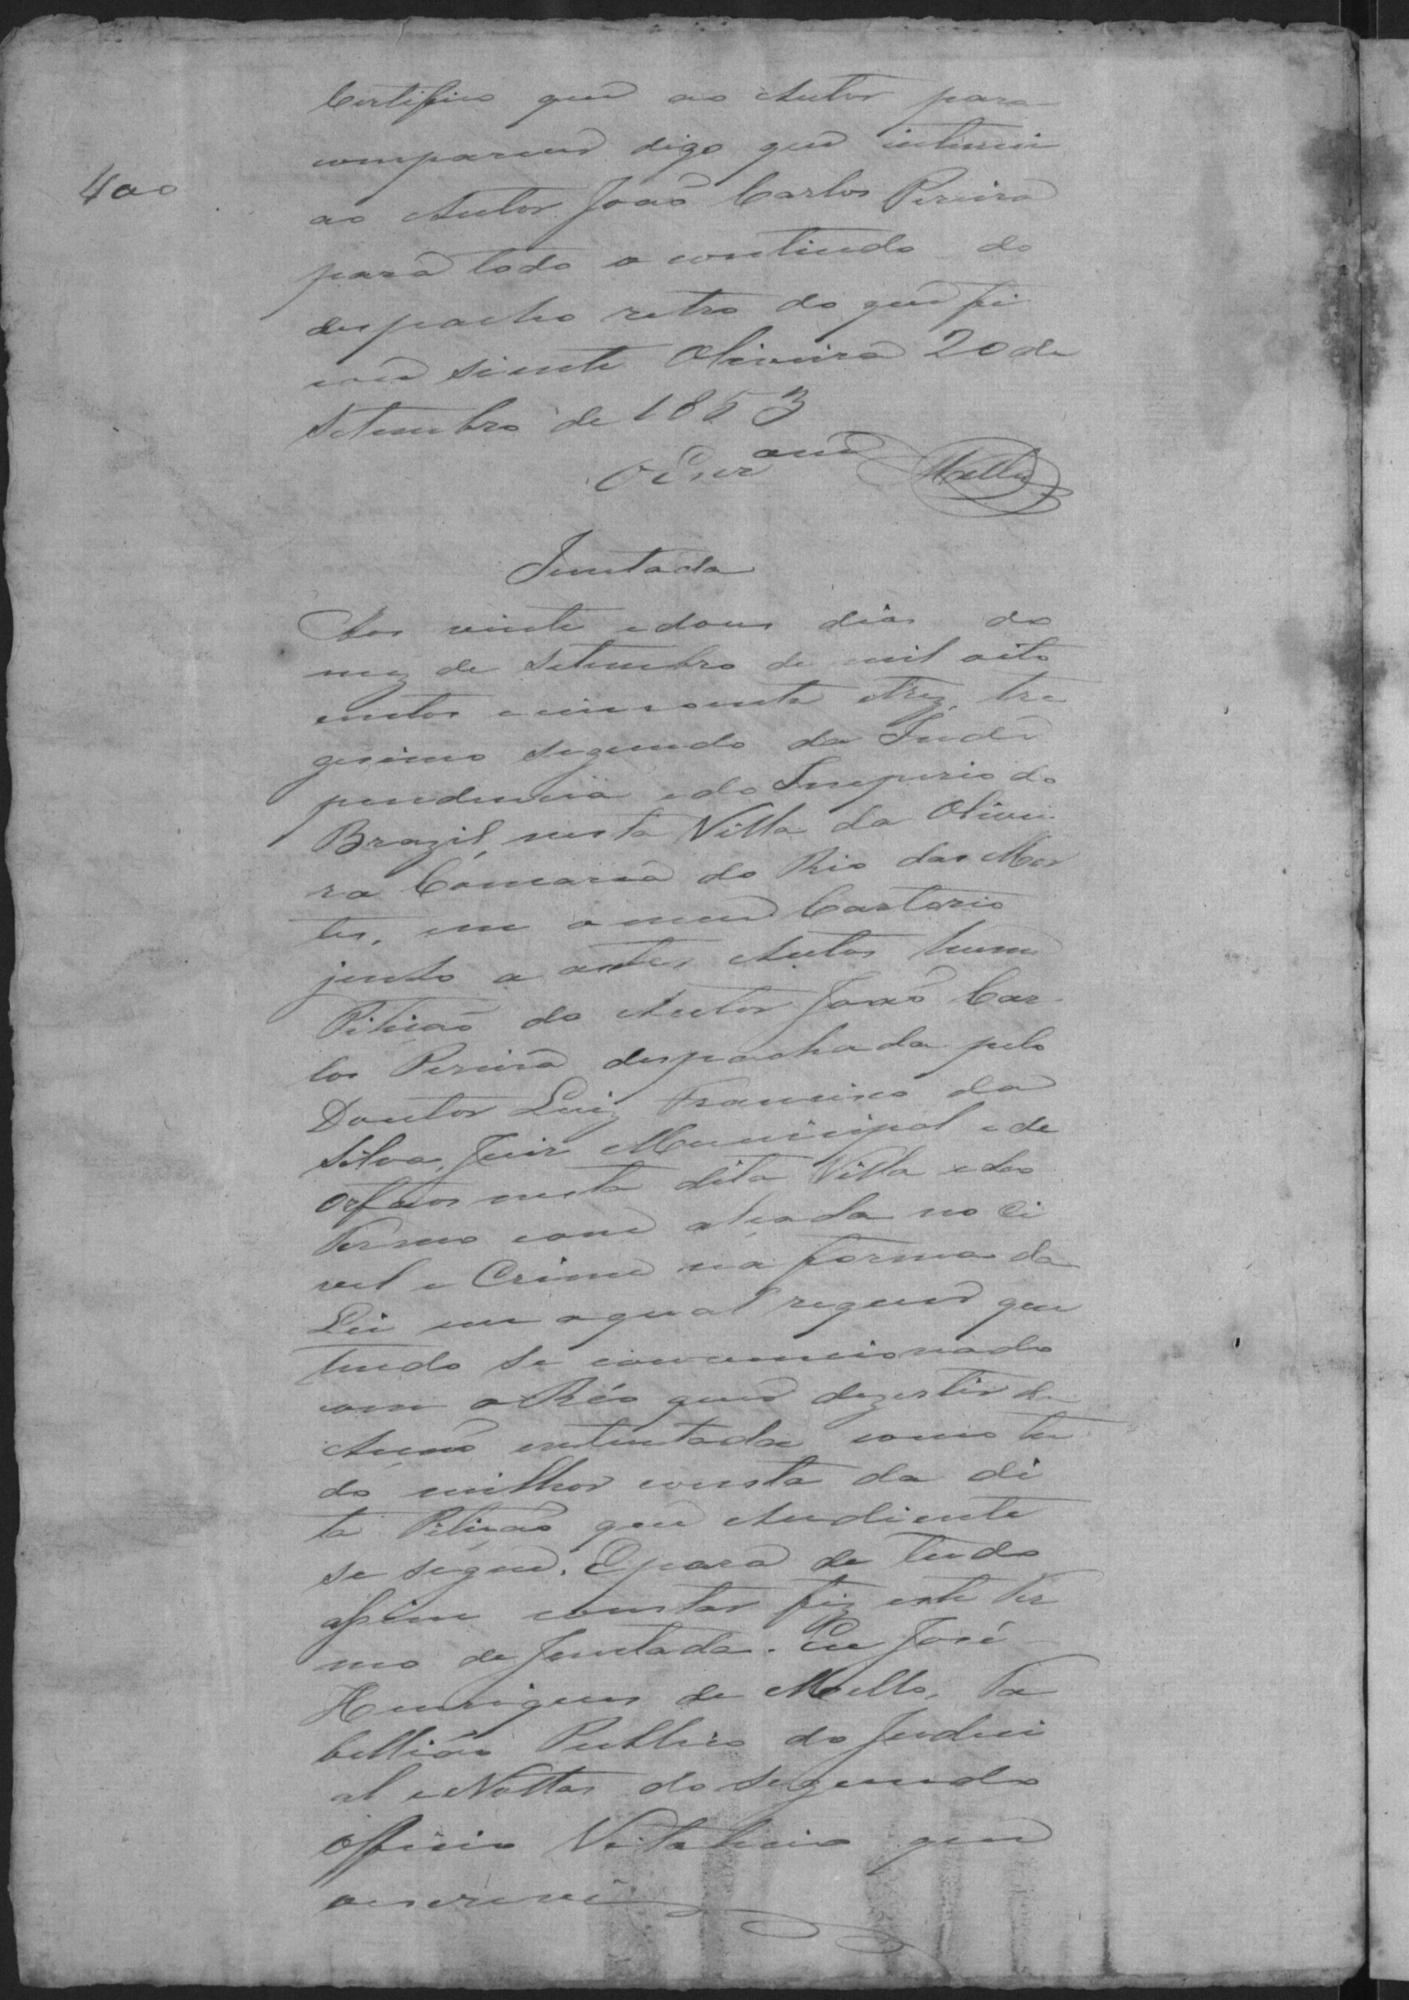 Certifico que ao Autor para
comparecer digo que intimei
400
ao Autor João Carlos Pereira
para todo o contiudo do
despacho retro do que fi
cou siente Oliveira 20 de
Setembro de 1853
O Escr am Mello
Juntada
Aos vinte e dous dias do
mez de Setembro de mil oito
centos e cincoenta e trez, tre
gesimo segundo da Inde
pendencia e do Imperio do
Brazil, nesta Villa da Olivei
ra Comarca do Rio das Mor
tes, em o meu Cartorio
junto a estes Autos huma
Petição do Autor João Car-
los Pereira despachada pelo
Doutor Luiz Francisco da
Silva, Juiz Municipal e de
Orfaos nesta dita Villa e seo
Termo com alçada no Ci
vel e Crime na forma da
Lei em a qual requer que
tendo se convencionado
com o Réo quer dezestir da
Acção intentada, como tu
do milhor consta da di
ta Petição que Audiente
se segue. E para de tudo
assim constar fiz este Ter
mo de Juntada. Eu José
Henriques de Mello, Ta
bellião Publico do Judici
al e Nottas do segundo
Officio Vitalicio que
o escrevi